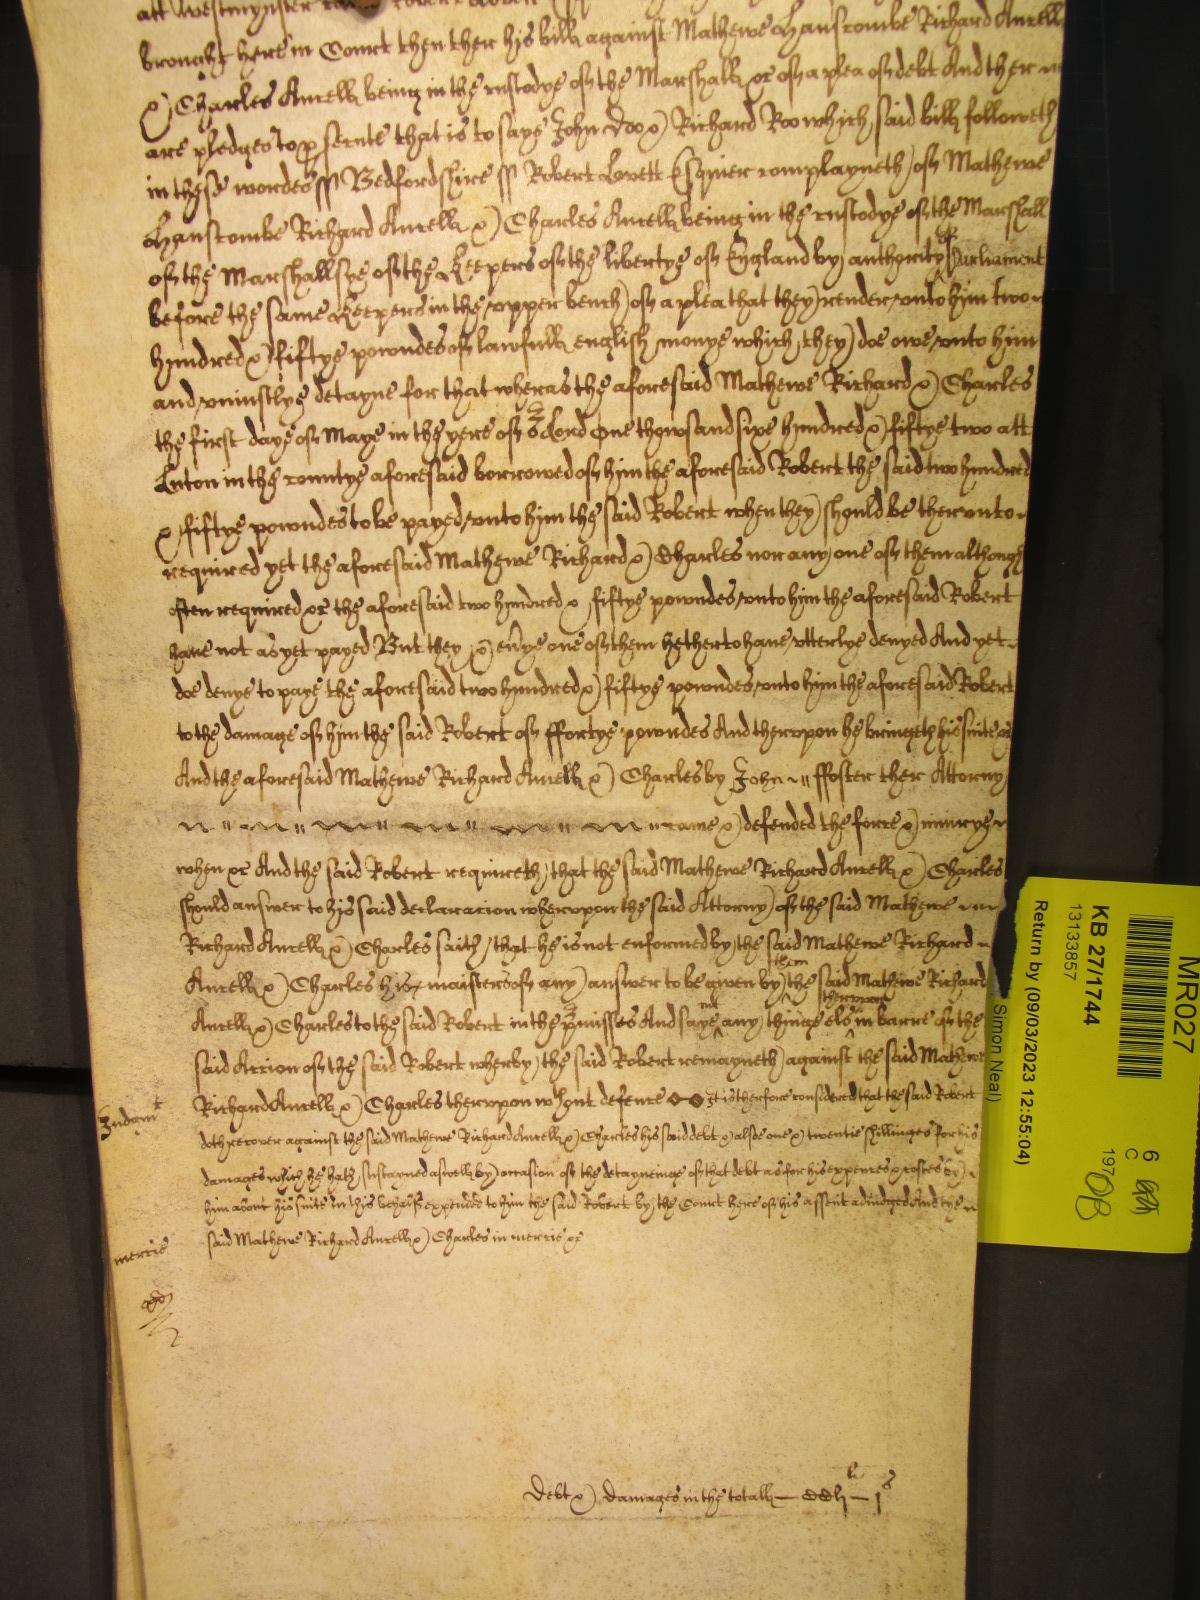 att Westmynster
brought here in Court then ther his bill against Mathewe Hanscombe Richard Aurell
& Charles Aurell being in the custodye of the Marshall &c of a plea of debt And ther
are pledges to prosecute that is to saye John Doo & Richard Roo which said bill followeth
in these wordes ss Bedfordshire ss Robert Lovett Esquier complayneth of Mathewe
Hanscombe Richard Aurell & Charles Aurell being in the custodye of the Marshall
of the Marshallsye of the Keepers of the libertye of England by authority of Parliament
before the same Keepers in the upper bench of a plea that they render unto him two
hundred & fiftye powndes of lawfull english monye which they doe owe unto him
and uniustlye detayne for that wheras the aforesaid Mathewe Richard & Charles
the first daye of Maye in the yere of or Lord One thowsand sixe hundred & fiftye two att
Luton in the countye aforesaid borrowed of him the aforesaid Robert the said two hundred
& fiftye powndes to be payed unto him the said Robert when they should be therunto
required yet the aforesaid Mathewe Richard & Charles nor any one of them although
often required &c the aforesaid two hundred & fiftye powndes unto him the aforesaid Robert
have not as yet payed But they & evye one of them hetherto have utterlye denyed And yet
doe denye to paye the aforesaid two hundred & fiftye powndes unto him the aforesaid Robert
to the damage of him the said Robert of ffortye powndes And therupon he bringeth his suite &c
And the aforesaid Mathewe Richard Aurell & Charles by John ffoster ther Attorny
came & defended the force & iniurye
when &c And the said Robert requireth that the said Mathewe Richard Aurell & Charles
should answer to his said declaracion wherupon the said Attorny of the said Mathewe
Richard Aurell & Charles saith that he is not enformed by the said Mathewe Richard
Aurell & Charles his maisters of any answer to be given by them the said Mathewe Richard
Aurell & Charles to the said Robert in the pmisses And saye not any thinge els therupon in barre of the
said Accion of the said Robert wherby the said Robert remayneth against the said Mathewe
Richard Aurell & Charles therupon wthout defence It is therfore considered that the said Robert
Iudgmt
doth recover against the said Mathewe Richard Aurell & Charles his said debt & alsoe one & twentie shillinges for his
damages which he hath sustayned aswell by occasion of the detayneinge of that debt as for his expences & costes by
him about his suite in this behalf expended to him the said Robert by the Court here of his assent adiudged And the
said Mathewe Richard Aurell & Charles in mercie &c
mercie
Debt & damages in the totall — CCli li — js
MR027
6
C
197
KB 27/1744
13133857
Simon Neal)
Return by (09/03/2023 12:55:04)